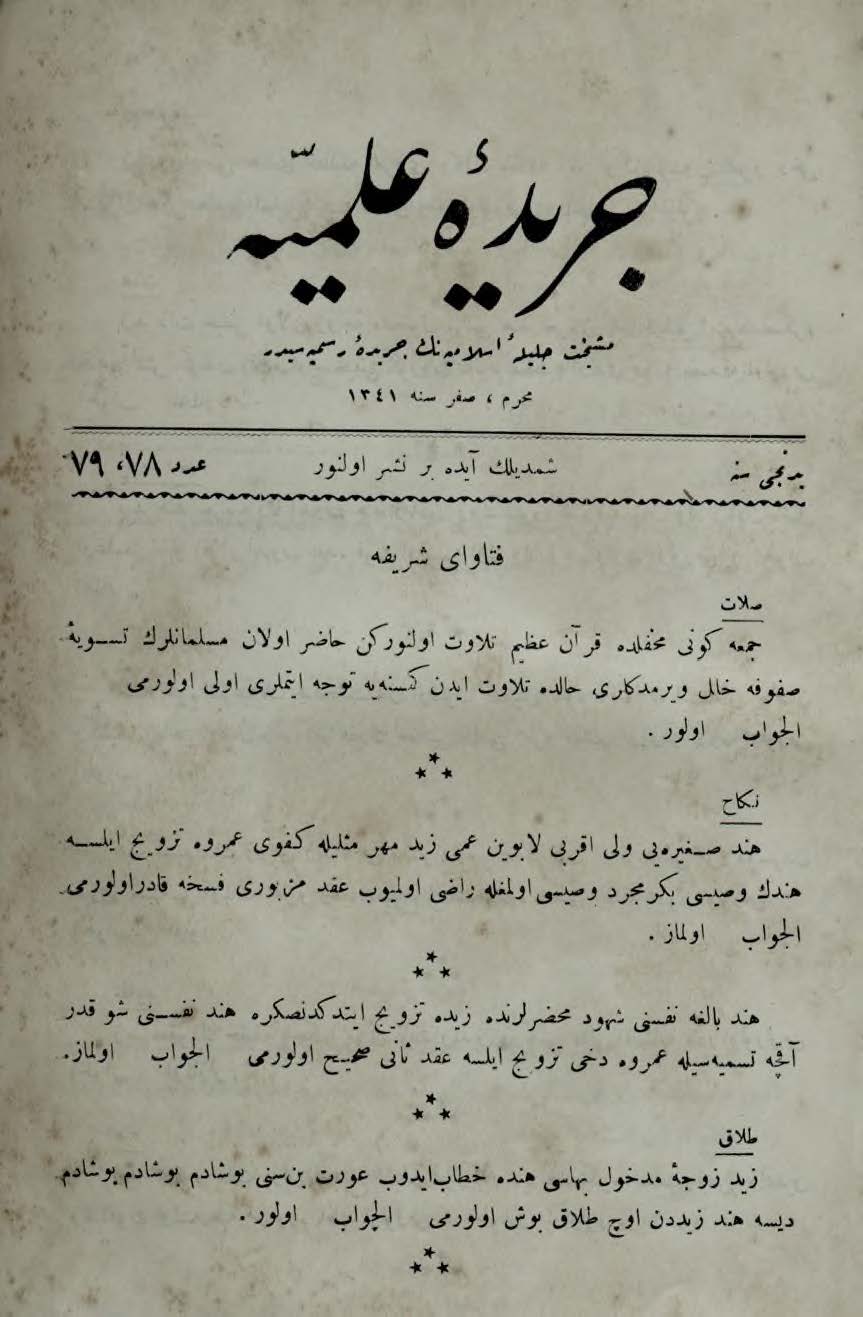 جريدۀ علميّه
مشيخت جليلۀ اسلاميه‌نك جريدۀ رسميه‌سيدر
محرم ، صفر سنه ١٣٤١
يدنجى سنه
شمديلك آيده بر نشر اولنور
عدد ٧٨، ٧٩
فتاواى شريفه
صلات
جمعه كونى محفلده قرآن عظيم تلاوت اولنوركن حاضر اولان مسلمانلرك تسويۀ
صفوفه خلل ويرمدكارى حالده تلاوت ايدن كسنه‌يه توجه ايتملرى اولى اولورمى
الجواب اولور .
نكاح
هند صغيره‌يى ولى اقربى لابوين عمى زيد مهر مثليله كفوى عمروه تزويج ايلسه
هندك وصيسى بكر مجرد وصيسى اولمغله راضى اولميوب عقد مزبورى فسخه قادر اولورمى
الجواب اولماز .
هند بالغه نفسنى شهود محضرلرنده زيده تزويج ايتدكدنصكره هند نفسنى شو قدر
آقچه تسميه‌سيله عمروه دخى تزويج ايلسه عقد ثانى صحيح اولورمى الجواب اولماز .
طلاق
زيد زوجۀ مدخول بهاسى هنده خطاب ايدوب عورت بن سنى بوشادم بوشادم بوشادم
ديسه هند زيددن اوچ طلاق بوش اولورمى الجواب اولور .